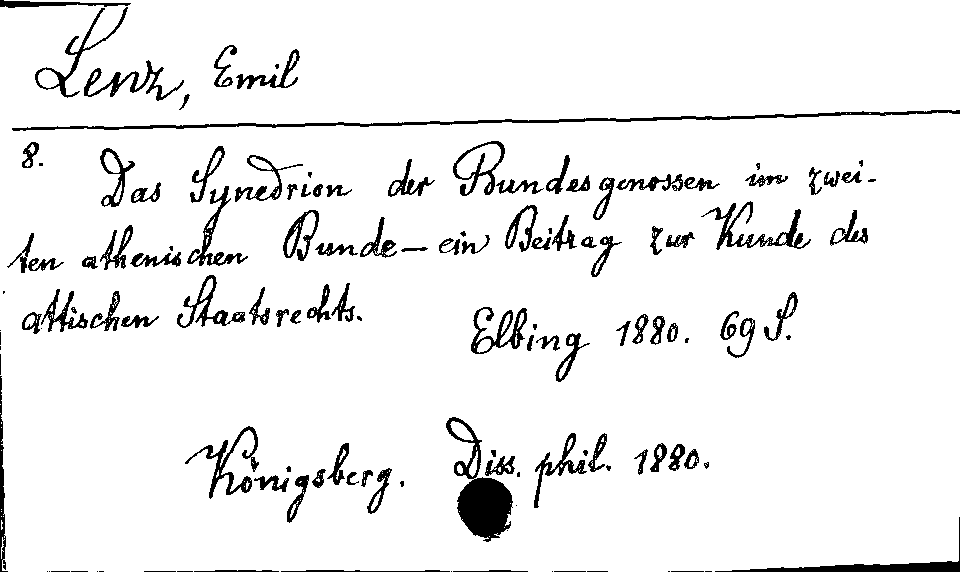 Lenz, Emil
8. Das Synedrion der Bundesgenossen im zwei-
ten athenischen Bunde – ein Beitrag zur Kunde des
attischen Staatsrechts.
Elbing 1880. 69 S.
Königsberg. Diss. phil. 1880.